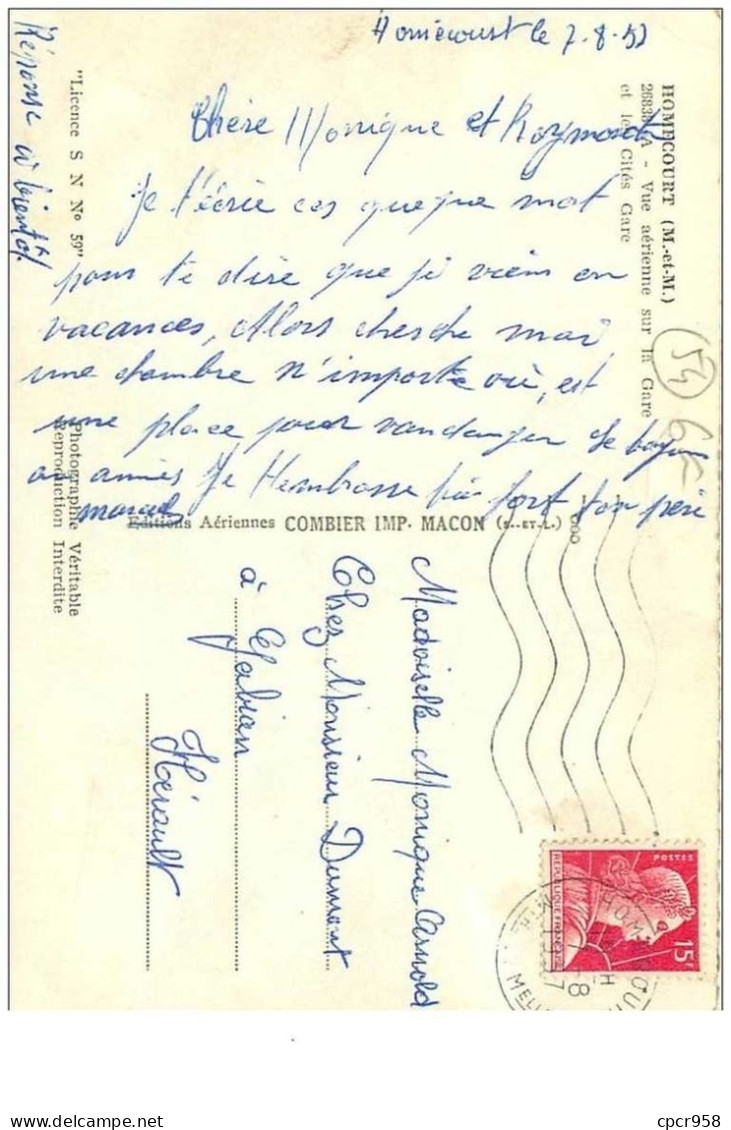 Homécourt le 7-8-57
Chère Monique et Raymond
Je t'écrie ces quelque mot
pour te dire que je viens en
vacances, Alors cherche moi
une chambre n'importe où, est
une place pour vandanger le bojour
au amies Je t'embrasse bien fort ton père
marcel
Réponse a bientôt
HOMECOURT (M.-et-M.)
A - Vue aérienne sur la Gare
et les Cités Gare
"Licence S N N° 59"
Photographie Véritable
Reproduction Interdite
Editions Aériennes COMBIER IMP. MACON (S.-ET-L.)
54
6F
Madoiselle Monique Arnold
Chez Monsieur Dumont
à Gabian
Hérault
POSTES
REPUBLIQUE FRANÇAISE
15F
cpcr958